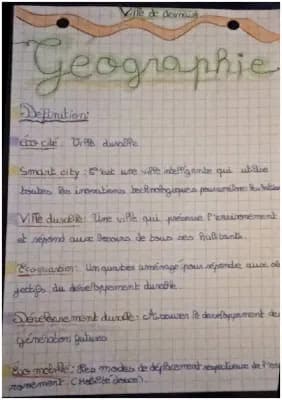 Ville de demain
Geographie
Définition:
éco cité: Ville durable
Smart city: C'est une ville intelligente qui utilise
toutes les inovations technologiques pour
Ville durable: Une ville qui préserve l'environnement
et répond aux besoins de tous ses habitants.
Ecoquartier: Un quartier aménagé pour répondre aux ob
jectifs du développement durable.
Développement durable: Assurer le développement de
génération futures
Eco mobilité: Les modes de déplacement respectueux de l'en
ronnement. (Mobilité douce).